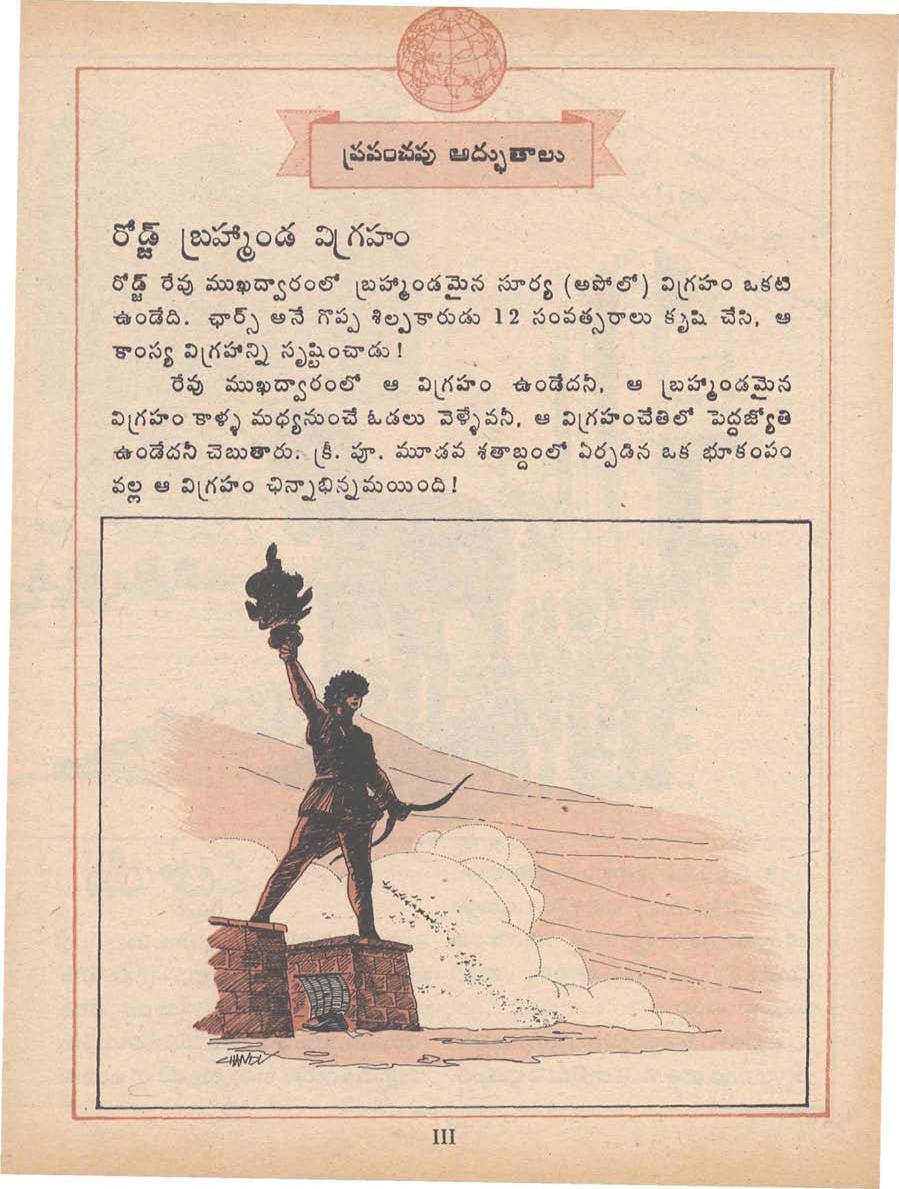 ప్రపంచపు అద్భుతాలు
రోడ్జ్ బ్రహ్మాండ విగ్రహం
రోడ్జ్ రేవు ముఖద్వారంలో బ్రహ్మాండమైన సూర్య (అపోలో) విగ్రహం ఒకటి
ఉండేది. ఛార్స్ అనే గొప్ప శిల్పకారుడు 12 సంవత్సరాలు కృషి చేసి, ఆ
కాంస్య విగ్రహాన్ని సృష్టించాడు!
రేవు ముఖద్వారంలో ఆ విగ్రహం ఉండేదనీ, ఆ బ్రహ్మాండమైన
విగ్రహం కాళ్ళ మధ్యనుంచే ఓడలు వెళ్ళేవనీ, ఆ విగ్రహంచేతిలో పెద్దజ్యోతి
ఉండేదనీ చెబుతారు. క్రీ. పూ. మూడవ శతాబ్దంలో ఏర్పడిన ఒక భూకంపం
వల్ల ఆ విగ్రహం ఛిన్నాభిన్నమయింది!
CHANDV
III